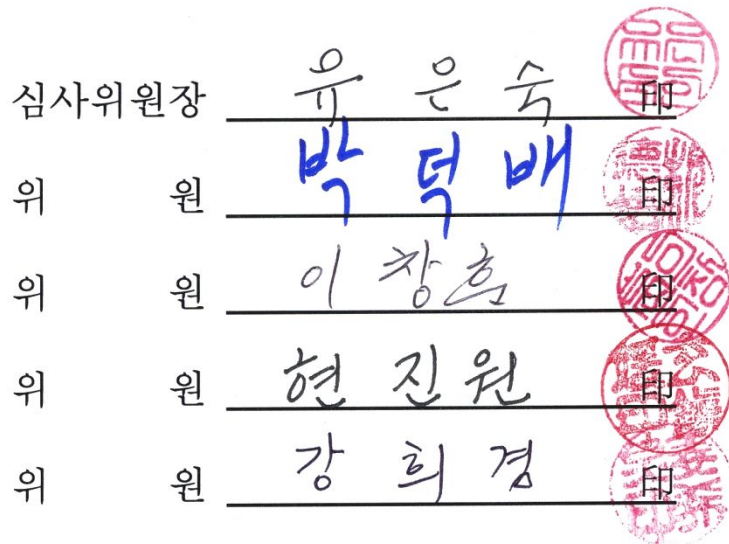 심사위원장 유 은 숙 印
위 원 박 덕 배 印
위 원 이 창흠 印
위 원 현 진 원 印
위 원 강 희 경 印